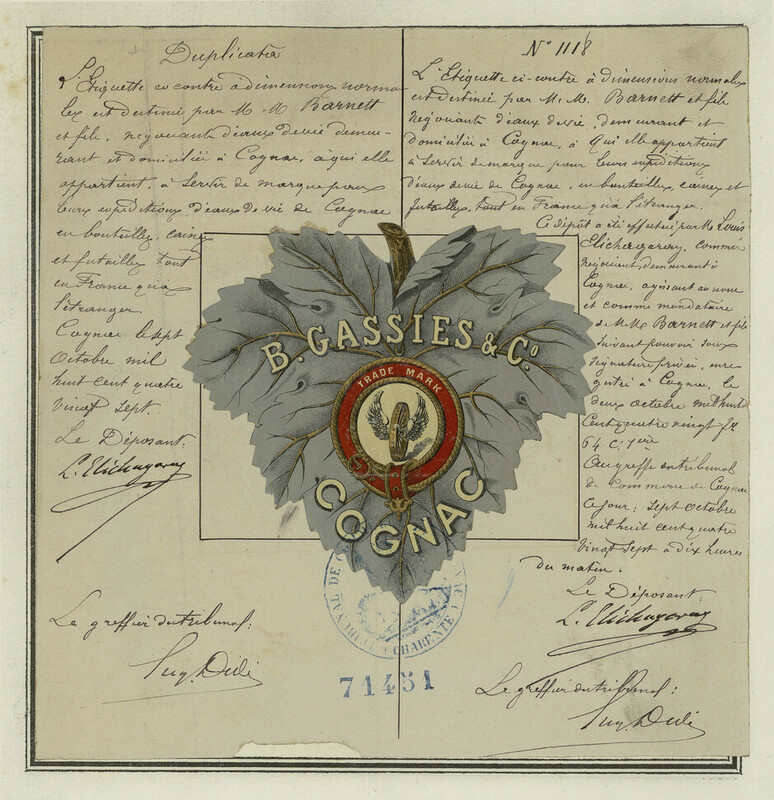 Duplicata
L'Etiquette ci contre à dimensions norma-
les est destinée par M. M. Barnett
et fils, négociants d'eaux de vie demeu-
rant et domiciliés à Cognac, à qui elle
appartient, à servir de marque pour
leurs expéditions d'eaux de vie de Cognac
en bouteilles, caisses
et futailles tant
en France qu'à
l'étranger.
Cognac le sept
Octobre mil
huit cent quatre
vingt sept.
Le Déposant:
L. Elichagaray
Le greffier du tribunal:
N° 1118
L'Etiquette ci-contre à dimensions normales
est destinée par M. M. Barnett et fils
négociants d'eaux de vie, demeurant et
domiciliés à Cognac, à qui elle appartient
à servir de marque pour leurs expéditions
d'eaux de vie de Cognac, en bouteilles, caisses et
futailles, tant en France qu'à l'étranger.
Ce dépôt a été effectué par M. Louis
Elichagaray, commis
négociant, demeurant à
Cognac, agissant au nom
et comme mandataire
de M. M. Barnett et fils
suivant pouvoir sous
signature privée, enre
gistré à Cognac, le
deux octobre mil huit
cent quatre vingt
64 c.
Au greffe du tribunal
de Commerce de Cognac
Ce jour: sept octobre
mil huit cent quatre
vingt sept à dix heures
du matin.
Le Déposant:
L. Elichagaray
Le greffier du tribunal:
B. GASSIES & Cº
TRADE MARK
COGNAC
TRIBUNAL DE CHARENTE
71451